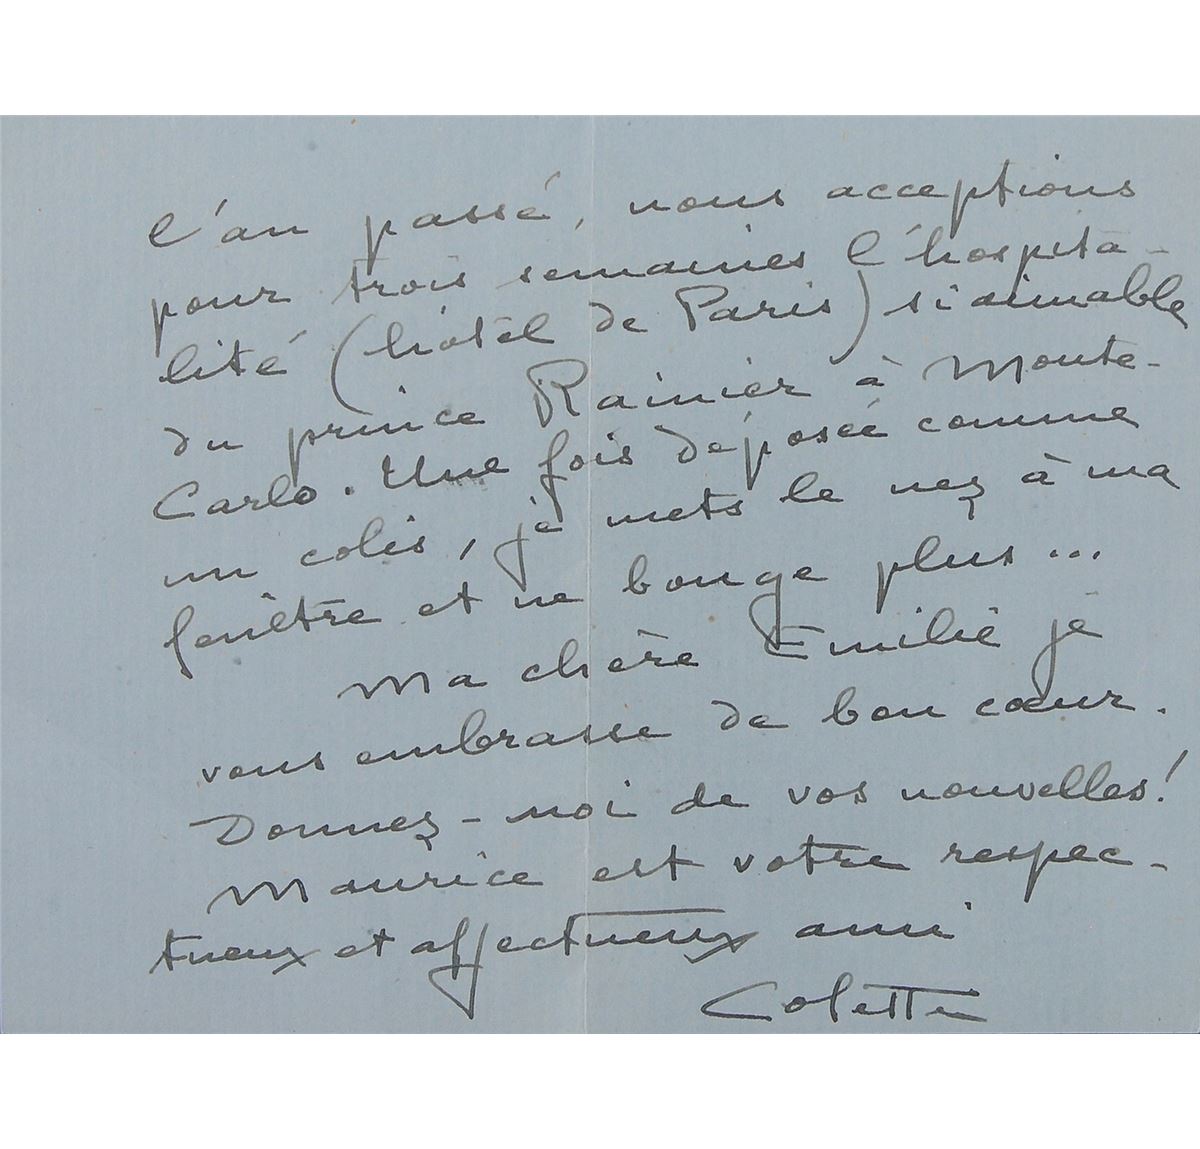 l'an passé, nous acceptions
pour trois semaines l'hospita-
lité (hôtel de Paris) si aimable
du prince Rainier à Monte-
Carlo. Une fois déposée comme
un colis, je mets le nez à ma
fenêtre et ne bouge plus...
Ma chère Emilie je
vous embrasse de bon cœur.
Donnez-moi de vos nouvelles!
Maurice est votre respec-
tueux et affectueux ami
Colette